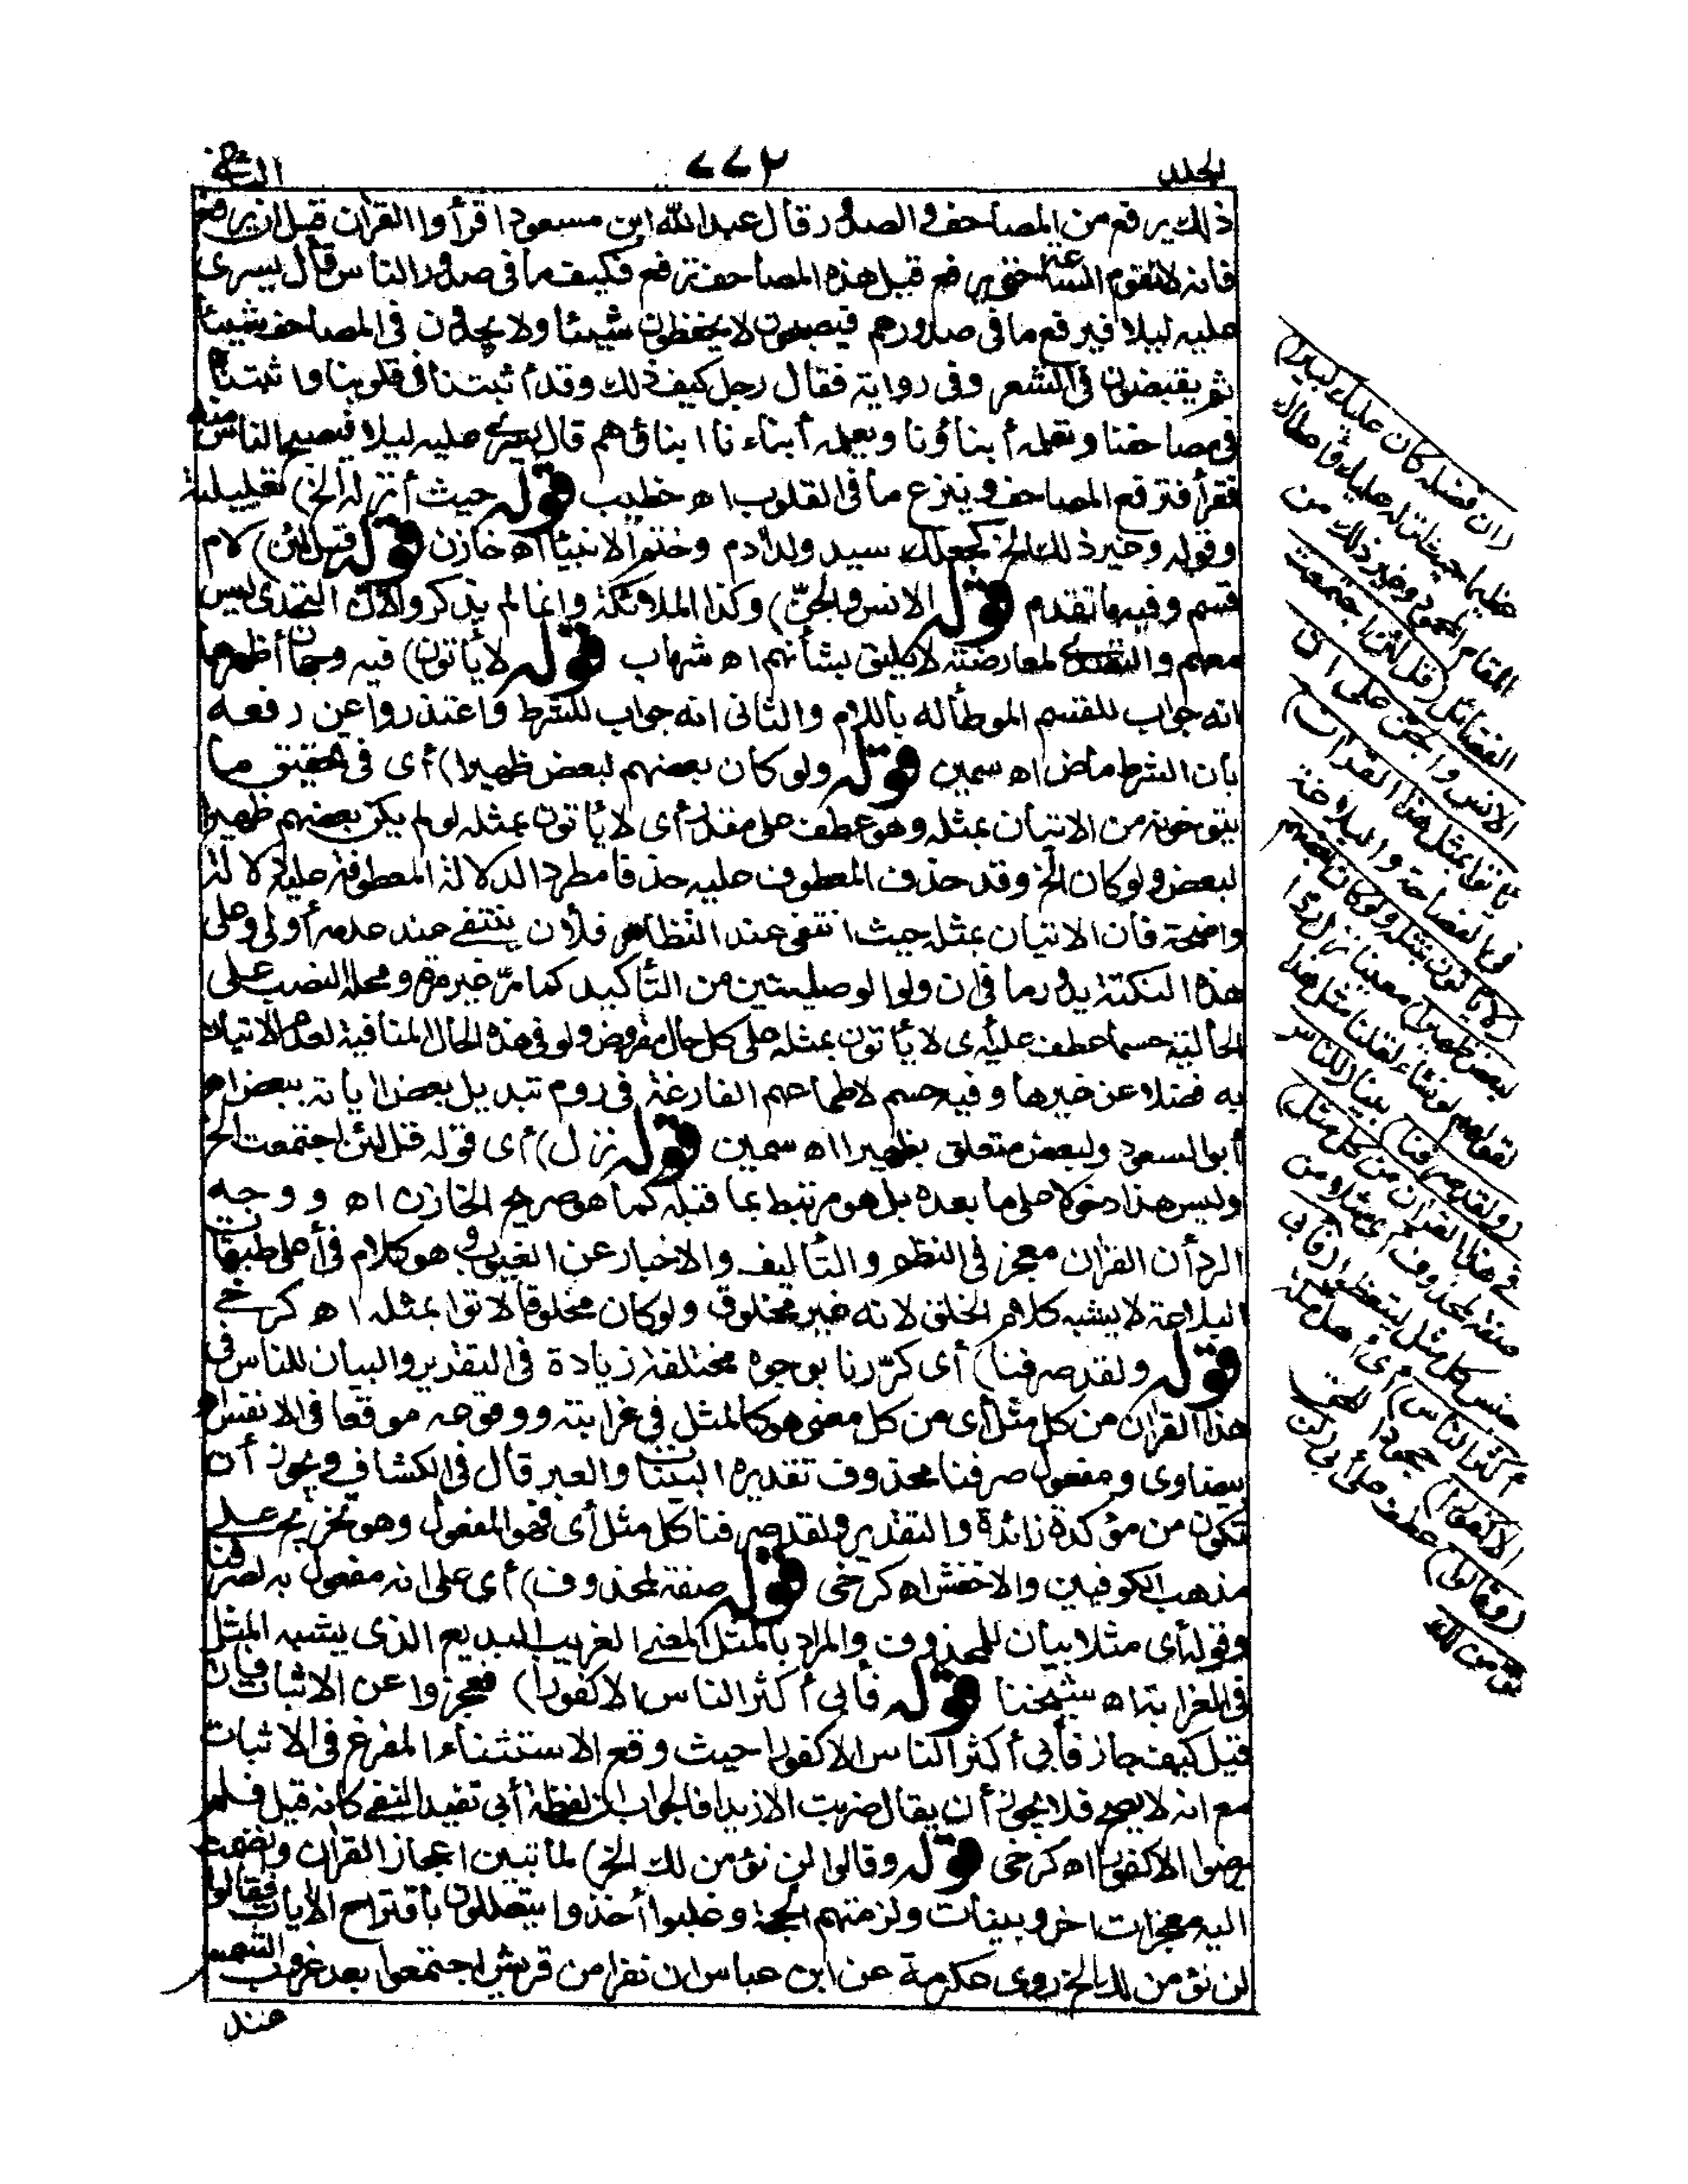 الجلد
٧٧٢
الثانی
ذلك يرفع من المصاحف والصدور قال عبد الله ابن مسعود اقرأوا القرآن قبل ان يرفع
فانه لا تقوم الساعة حتى يرفع قيل هذه المصاحف ترفع فكيف ما فى صدور الناس قال يسرى
عليه ليلا فيرفع ما فى صدورهم فيصبحون لا يحفظون شيئا ولا يجدون فى المصاحف شيئا
ثم يفيضون فى الشعر وفى رواية فقال رجل كيف ذلك وقد أثبتناه فى قلوبنا وأثبتناه
فى مصاحفنا ونعلمه أبناؤنا ويعلمه أبناءنا أبناؤهم قال يسرى عليه ليلا فيصبح الناس منه
فقرأ فترفع المصاحف وينزع ما فى القلوب اه خطيب قوله حيث أنزله الخ) تعليلية
وقوله وغير ذلك الخ كجعلك سيد ولد آدم وختم الانبياء اه خازن قوله قل لئن) لام
قسم وفيه ما تقدم قوله الانس والجن) وكذا الملائكة وانما لم يذكروا لان التحدى ليس
معهم والتصدى لمعارضته لا يليق بشأنهم اه شهاب قوله لا يأتون) فيه وجهان أظهرهما
انه جواب للقسم الموطأ له باللام والثانى انه جواب للشرط واعتذروا عن رفعه
بأن الشرط ماض اه سمين قوله ولو كان بعضهم لبعض ظهيرا) أى فى تحقيق ما
يتوخونه من الاتيان بمثله وهو عطف على مقدر أى لا يأتون بمثله لو لم يكن بعضهم ظهيرا
لبعض ولو كان الخ وقد حذف المعطوف عليه حذفا مطردا لدلالة المعطوف عليه دلالة
واضحة فان الاتيان بمثله حيث انتفى عند التظاهر فلأن ينتفى عند عدمه أولى وعلى
هذه النكتة يدور ما فى ان ولو الوصليتين من التأكيد كما مر غير مرة ومحله النصب على
الحالية حسبما عطف عليه أى لا يأتون بمثله على كل حال مفروض ولو فى هذه الحال المنافية لعدم الاتيان
به فضلا عن غيرها وفيه حسم لاطماعهم الفارغة فى روم تبديل بعض آياته ببعض اه
أبو السعود ولبعض متعلق بظهيرا اه سمين قوله نزل) أى قوله قل لئن اجتمعت الخ
وليس هذا دخولا على ما بعده بل هو مرتبط بما قبله كما هو صريح الخازن اه ووجه
الرد أن القرآن معجز فى النظم والتأليف والاخبار عن الغيوب وهو كلام فى أعلى طبقات
البلاغة لا يشبه كلام الخلق لانه غير مخلوق ولو كان مخلوقا لاتوا بمثله اه كرخى
قوله ولقد صرفنا) أى كررنا بوجوه مختلفة زيادة فى التقرير والبيان للناس فى
هذا القرآن من كل مثل أى من كل معنى هو كالمثل فى غرابته ووقوعه موقعا فى الانفس اه
بيضاوى ومفعول صرفنا محذوف تقديره البينات والعبر قال فى الكشاف ويجوز أن
تكون من مؤكدة زائدة والتقدير ولقد صرفنا كل مثل أى فهو المفعول وهو تخريج على
مذهب الكوفيين والاخفش اه كرخى قوله صفة لمحذوف) أى على انه مفعول به لصرفنا
وقوله أى مثلا بيان للمحذوف والمراد بالمثل المعنى الغريب البديع الذى يشبه المثل
فى الغرابة اه شيخنا قوله فأبى أكثر الناس الا كفورا) فعجزوا عن الاثبات فان
قيل كيف جاز فأبى أكثر الناس الا كفورا حيث وقع الاستثناء المفرغ فى الاثبات
مع انه لا يصح فلا يجوز أن يقال ضربت الا زيدا فالجواب ان لفظة أبى تفيد النفى كانه قيل فلم
يرضوا الا كفورا اه كرخى قوله وقالوا لن نؤمن لك الخ) لما تبين اعجاز القرآن وانضمت
اليه معجزات اخر وبينات ولزمتهم الحجة وغلبوا أخذوا يتعللون باقتراح الآيات فقالوا
لن نؤمن لك الخ روى عكرمة عن ابن عباس ان نفرا من قريش اجتمعوا بعد غروب الشمس
عند
(ان فضله كان عليك كبيرا)
عظيما حيث انزله عليك وأعطاك
المقام المحمود وغير ذلك من
الفضائل (قل لئن اجتمعت
الانس والجن على أن
يأتوا بمثل هذا القرآن)
فى الفصاحة والبلاغة
(لا يأتون بمثله ولو كان بعضهم
لبعض ظهيرا) معينا نزل ردا
لقولهم لو نشاء لقلنا مثل هذا
(ولقد صرفنا) بينا (للناس
فى هذا القرآن من كل مثل)
صفة لمحذوف أى مثلا من
جنس كل مثل ليتعظوا (فأبى
أكثر الناس) أى أهل مكة
(الا كفورا) جحودا للحق
(وقالوا) عطف على أبى (لن
نؤمن لك